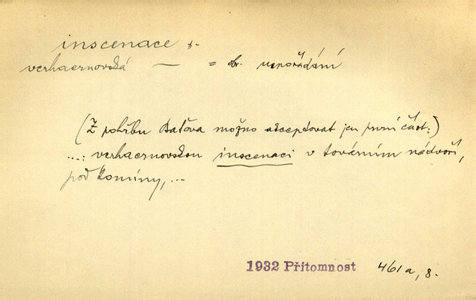 inscenace f.
verhaernovská — = uspořádání
(Z pohřbu Baťova možno akceptovat jen první část:)
...: verhaernovskou inscenaci v továrním nádvoří,
pod komíny, ...
1932 Přítomnost 461a, 8.